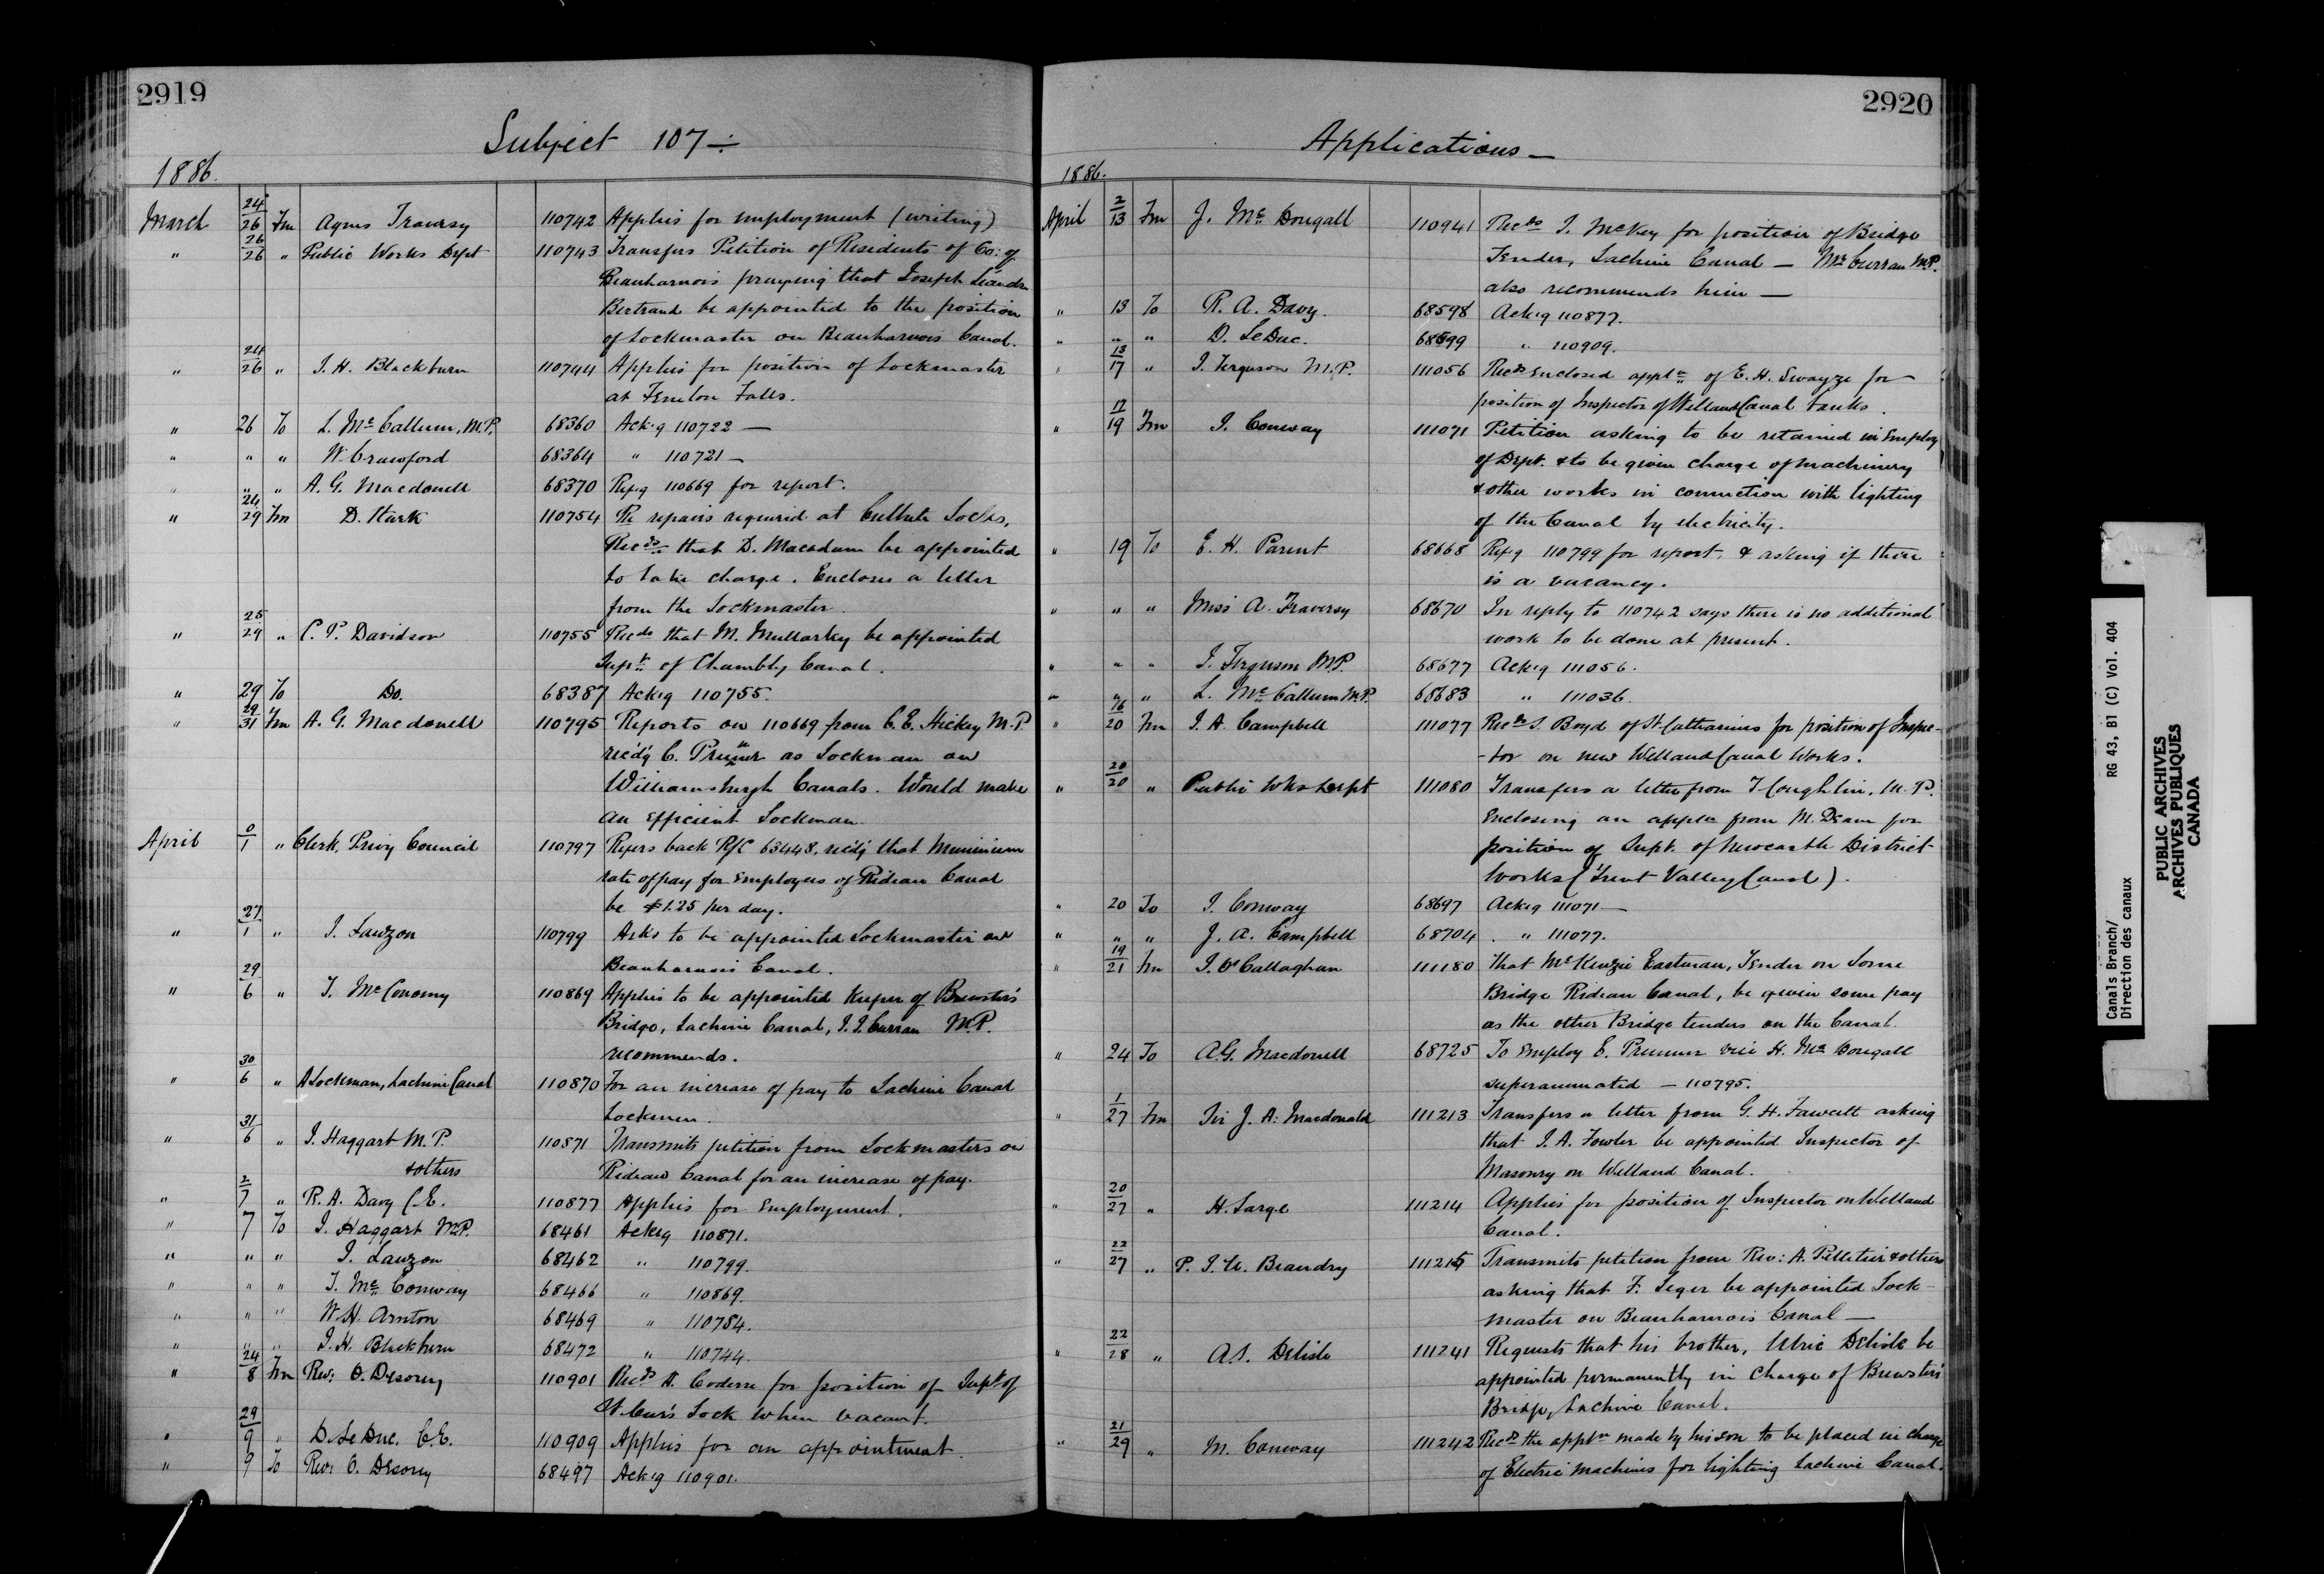 2919
Subject 107 ÷
1886.
March 24/26 Fm Agnes Traversy 110742 Applies for employment (writing)
" 26/26 " Public Works Dept 110743 Transfers Petition of Residents of Co: of
Beauharnois praying that Joseph Léandre
Bertrand be appointed to the position
of Lockmaster on Beauharnois Canal.
" 24/26 " J. H. Blackburn 110744 Applies for position of Lockmaster
at Fenelon Falls.
" 26 To L. McCallum, M.P. 68360 Ack'g 110722 —
" " " W. Crawford 68364 " 110721 —
" " " A. G. Macdonell 68370 Ref'g 110669 for report.
" 24/29 Fm D. Stark 110754 Re repairs required at Culbute Locks,
Recds that D. Macadam be appointed
to take charge. Encloses a letter
from the Lockmaster.
" 25/29 " C. P. Davidson 110755 Recds that M. Mullarky be appointed
Supt of Chambly Canal.
" 29 To Do. 68387 Ack'g 110755.
" 29/31 Fm A. G. Macdonell 110795 Reports on 110669 from C. E. Hickey M.P.
rec'd'g C. Pruner as Lockman on
Williamsburgh Canals. Would make
an efficient Lockman.
April 0/1 " Clerk, Privy Council 110797 Refers back R/C 63448, rec'd'g that Minimum
rate of pay for Employees of Rideau Canal
be $1.25 per day.
" 27/1 " J. Lauzon 110799 Asks to be appointed Lockmaster on
Beauharnois Canal.
" 29/6 " T. McConomy 110869 Applies to be appointed Keeper of Brewster's
Bridge, Lachine Canal, J. J. Curran M.P.
recommends.
" 30/6 " A Lockman, Lachine Canal 110870 For an increase of pay to Lachine Canal
Lockmen.
" 31/6 " J. Haggart M.P. 110871 Transmits petition from Lockmasters on
& others Rideau Canal for an increase of pay.
" 2/7 " R. A. Davy C.E. 110877 Applies for Employment.
" 7 To J. Haggart M.P. 68461 Ack'g 110871.
" " " J. Lauzon 68462 " 110799.
" " " T. McConway 68466 " 110869.
" " " W. H. Arnton 68469 " 110784.
" " " J. H. Blackburn 68472 " 110744.
" 24/8 Fm Rev: O. Desorcy 110901 Recds A. Coderre for position of Supt of
St. Ours Lock when vacant.
" 29/9 " D. LeDuc. C.E. 110909 Applies for an appointment.
" 9 To Rev: O. Desorcy 68497 Ack'g 110901.
2920
Applications —
1886.
April 2/13 Fm J. McDougall 110941 Recds J. McKey for position of Bridge
Tender, Lachine Canal — Mr Curran M.P.
also recommends him —
" 13 To R. A. Davy. 68598 Ack'g 110877.
" " " D. LeDuc. 68599 " 110909.
" 13/17 " J. Ferguson M.P. 111056 Recds Enclosed appln of E. H. Swayze for
position of Inspector of Welland Canal tanks.
" 17/19 Fm J. Conway 111071 Petition asking to be retained in Employ
of Dept. & to be given charge of machinery
& other works in connection with lighting
of the Canal by electricity.
" 19 To E. H. Parent 68668 Ref'g 110799 for report, & asking if there
is a vacancy.
" " " Miss A. Traversy 68670 In reply to 110742 says there is no additional
work to be done at present.
" " " J. Ferguson M.P. 68677 Ack'g 111056.
" " " L. McCallum M.P. 68683 " 111036.
" 16/20 Fm J. A. Campbell 111077 Recds J. Boyd of St. Catharines for position of Inspec-
-tor on new Welland Canal Works.
" 20/20 " Public Wks Dept 111080 Transfers a letter from T. Coughlin, M.P.
Enclosing an appln from M. Deam for
position of Supt. of Newcastle District
Works (Trent Valley Canal).
" 20 To J. Conway 68697 Ack'g 111071 —
" " " J. A. Campbell 68704 " 111077.
" 19/21 Fm J. O'Callaghan 111180 That McKenzie Eastman, Tender on Lorne
Bridge Rideau Canal, be given same pay
as the other Bridge tenders on the Canal.
" 24 To A. G. Macdonell 68725 To Employ C. Prunner vice H. McDougall
superannuated — 110795.
" 1/27 Fm Sir J. A. Macdonald 111213 Transfers a letter from G. H. Fawcett asking
that J. A. Fowler be appointed Inspector of
Masonry on Welland Canal.
" 20/27 " H. Large 111214 Applies for position of Inspector on Welland
Canal.
" 22/27 " P. J. U. Beaudry 111215 Transmits petition from Rev: A. Pelletier & others
asking that F. Leger be appointed Lock-
master on Beauharnois Canal —
" 22/28 " A. S. Delisle 111241 Requests that his brother, Ulric Delisle be
appointed permanently in charge of Brewster's
Bridge, Lachine Canal.
" 21/29 " M. Conway 111242 Recds the appln made by his son to be placed in charge
of Electric machines for lighting Lachine Canal.
Canals Branch/
Direction des canaux
RG 43, B1 (C) Vol. 404
PUBLIC ARCHIVES
ARCHIVES PUBLIQUES
CANADA